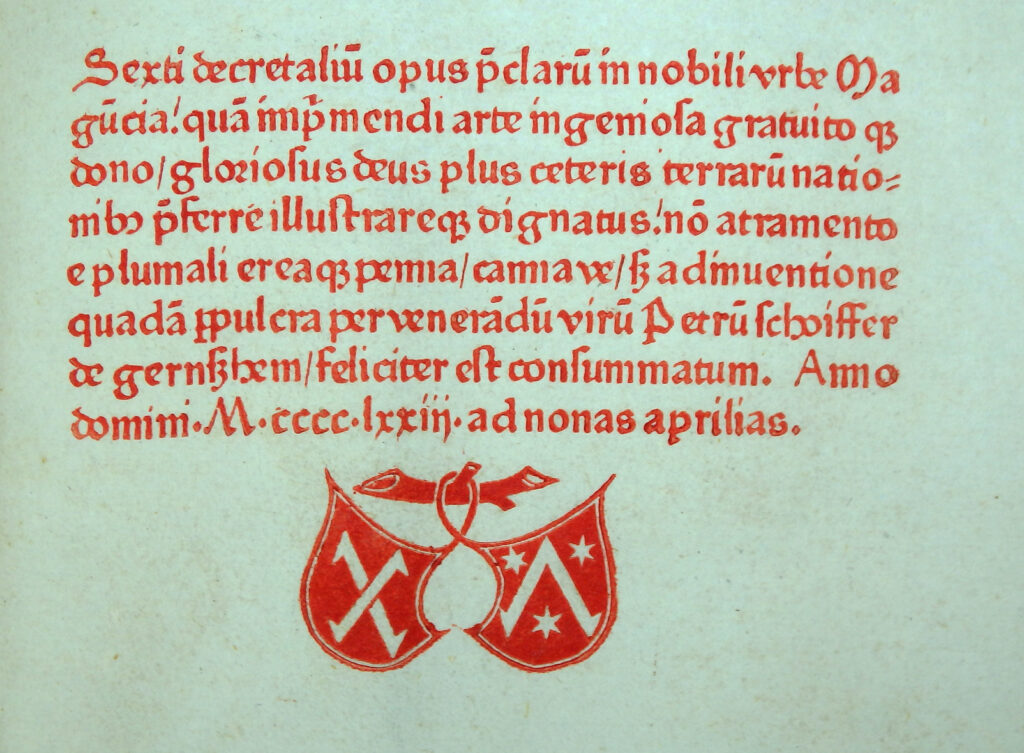 Sexti decretaliū opus p̄clarū in nobili vrbe Ma
gūcia! quā impͥmendi arte ingeniosa gratuito qꝫ
dono/ gloriosus deus plus ceteris terrarū natio⸗
nibꝰ p̄ferre illustrareqꝫ dignatus! nō atramento
e plumali ereaqꝫ penna/ cannave/ sꝫ adinuentione
quadā ꝑpulcra per venerādū virū Petrū schoiffer
de gernsꝫhem/ feliciter est consummatum. Anno
domini·M·cccc·lxxiij· ad nonas aprilias.